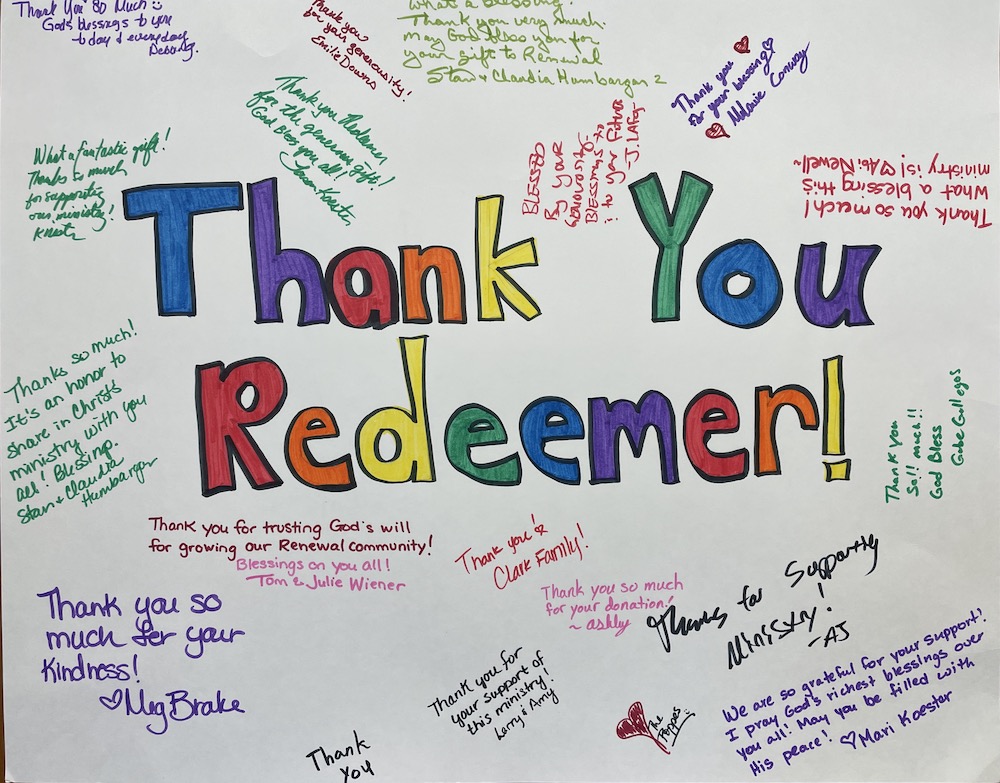 Thank You So Much
God's blessings to you
today & everyday
Deborig.
Thank you
for your generousity!
Emilie Downs
What a blessing!
Thank you very much.
May God bless you for
your gift to Renewal
Stan & Claudia Humbargar 2
Thank you
for your blessing
Melanie Conway
Thank you Redeemer
for the generous gift.!
God bless you all!
Jason Koester
What a fantastic gift!
Thanks so much
for supporting
our ministry!
BLESSED
By your
Generosity-
Blessings to
to your future
-J. LaFoy-
Thank you so much!
What a blessing this
ministry is! ♡Abi Newell~
Thank You
Redeemer!
Thanks so much!
It's an honor to
share in Christ's
ministry with you
all! Blessings.
Stan & Claudia
Humbargar
Thank you
So!! much!!
God Bless
Gabe Gallegos
Thank you for trusting God's will
for growing our Renewal community!
Blessings on you all!
Tom & Julie Wiener
Thank you!
Clark Family!
Thank you so much
for your donation!
~ ashley
Thanks for Supporting
Ministry!
-AJ
Thank you so
much for your
Kindness!
♡Meg Brake
Thank you for
your support of
this ministry!
Larry & Amy
The Poppes
We are so grateful for your support!
I pray God's richest blessings over
you all! May you be filled with
His peace! ♡Mari Koester
Thank
You